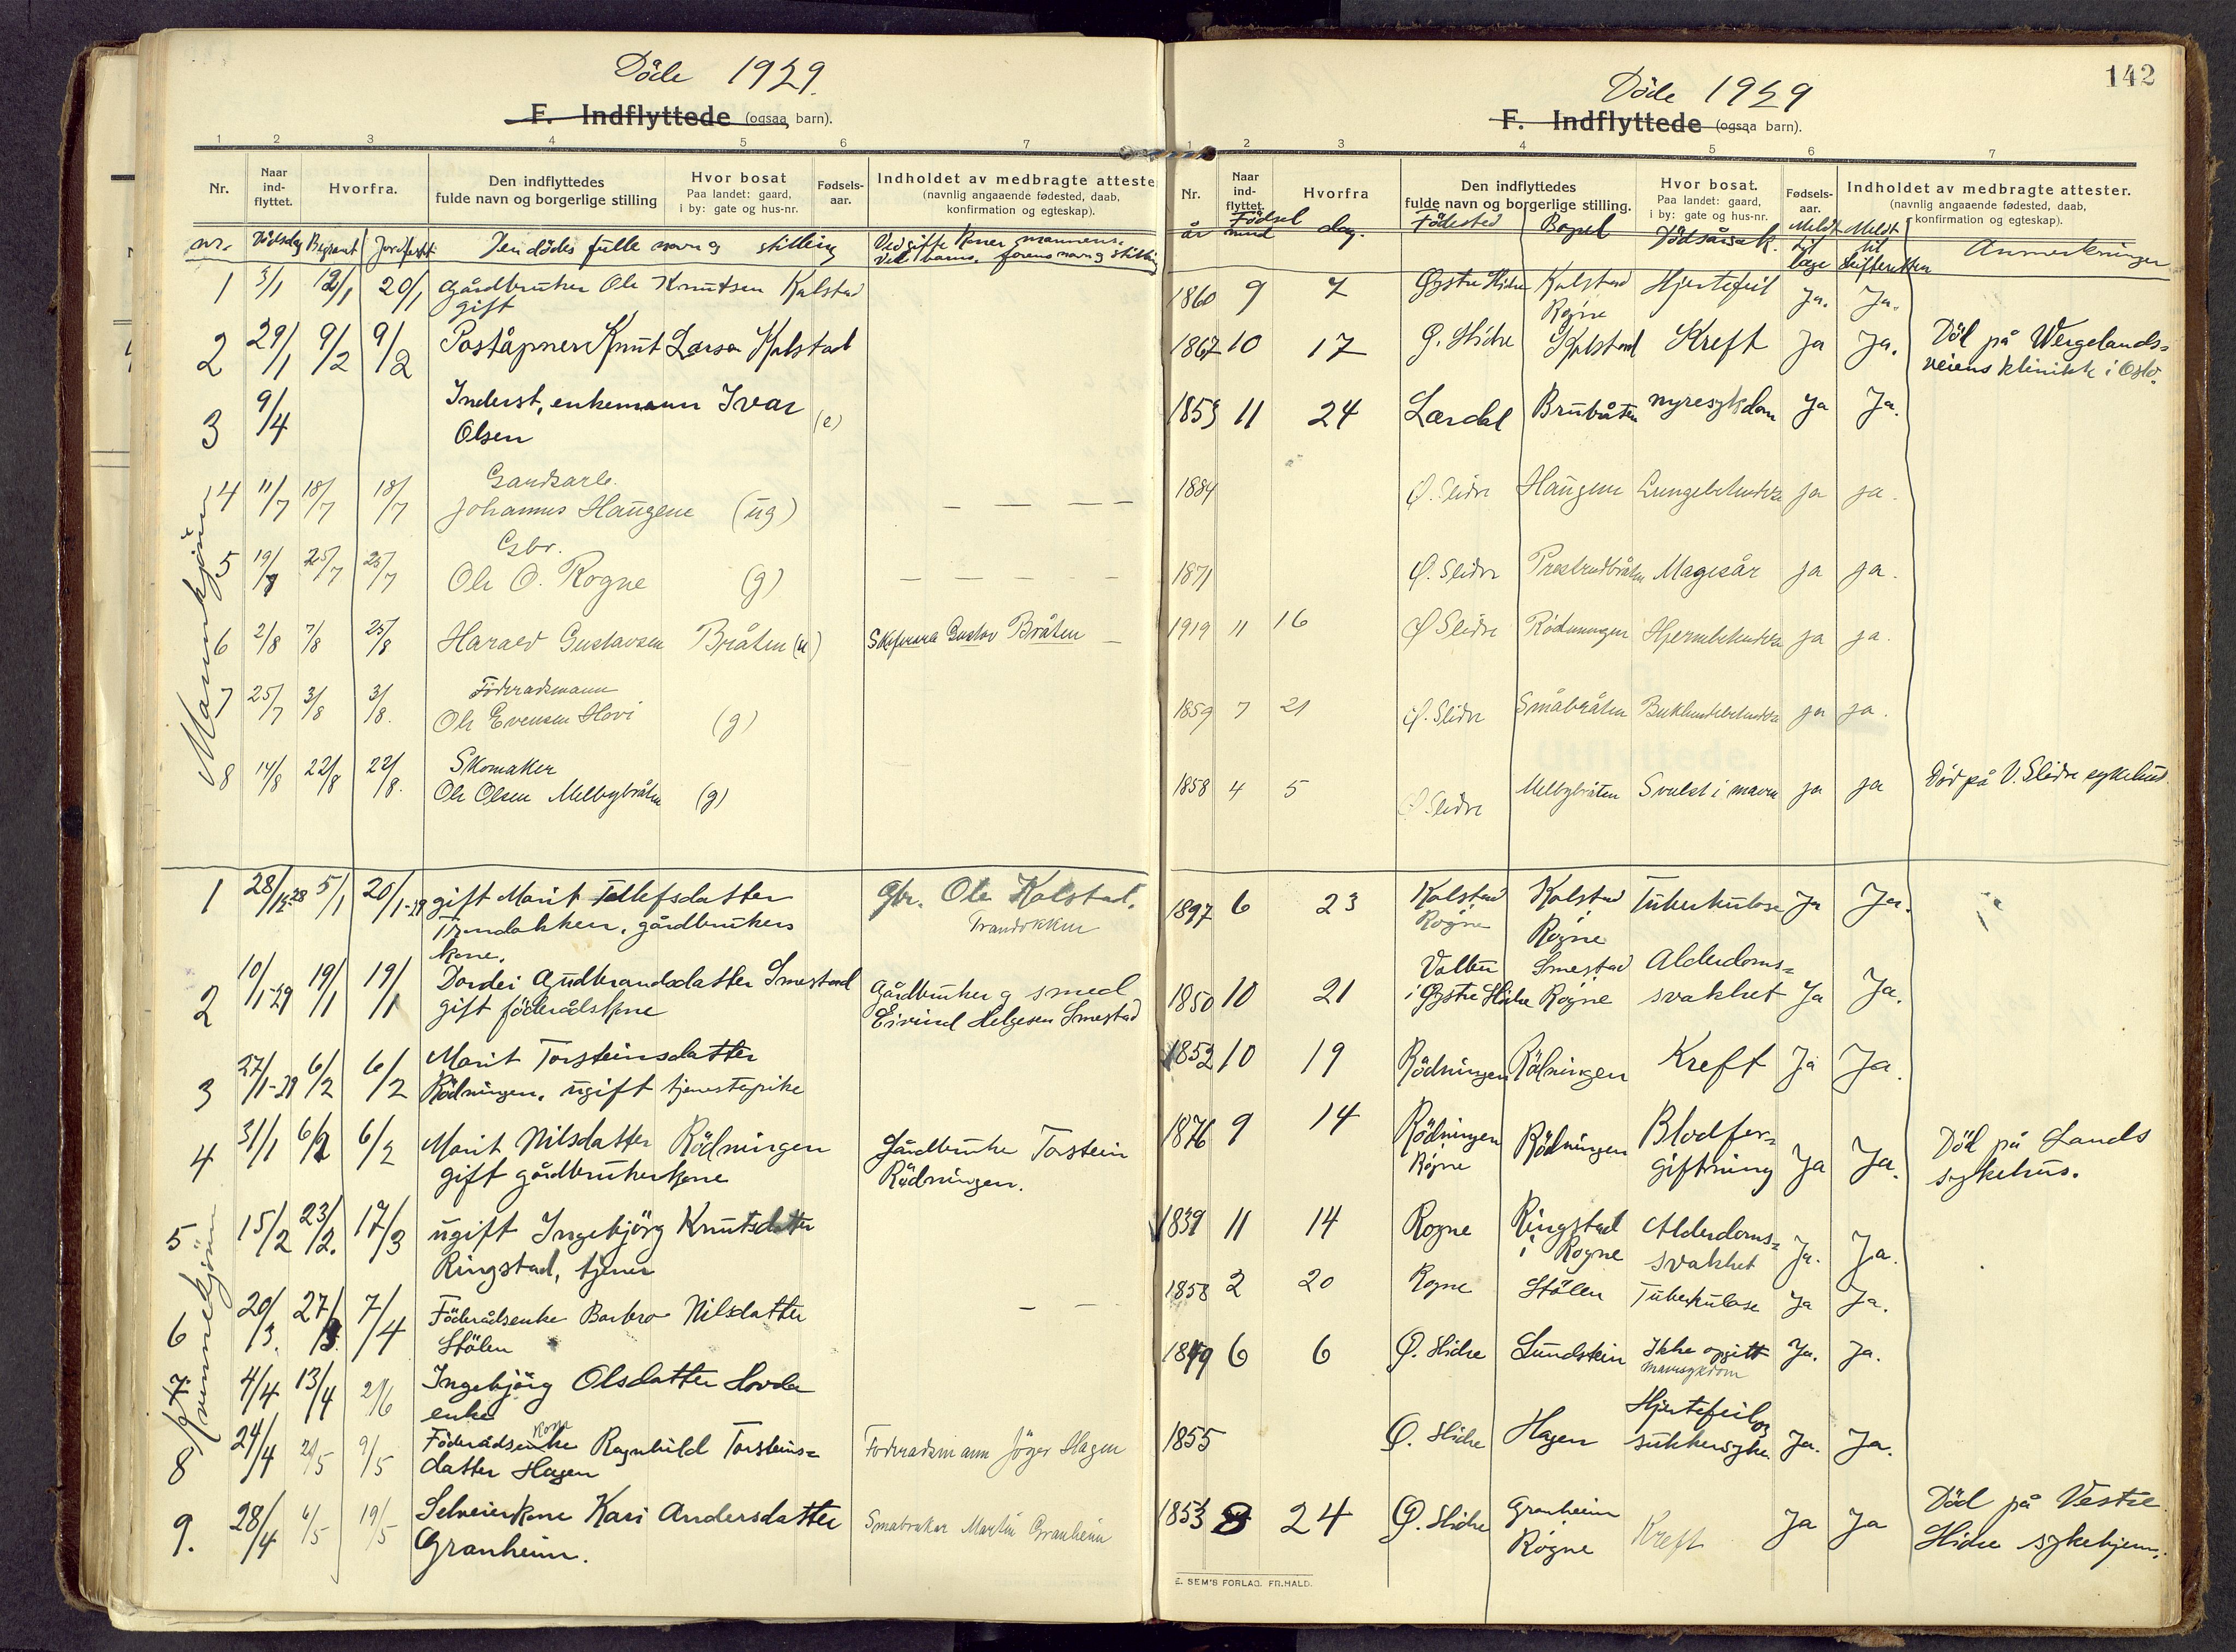 Döde 1929.
F. Indflyttede (ogsaa barn).
1 2 3 4 5 6 7
Nr. Naar ind-flyttet. Hvorfra. Den indflyttedes fulde navn og borgerlige stilling Hvor bosat Paa landet: gaard, i by: gate og hus-nr. Fødsels-aar. Indholdet av medbragte atteste (navnlig angaaende fødested, daab, konfirmation og egteskap).
nr. Dödsdag Begravet Jordfestet Den dödes fulle navn og stilling Ved gifte koner mannens, Ved barns, farens navn og stilling
Mannkjön
1 3/1 12/1 20/1 Gårdbruker Ole Knutsen Kalstad
gift
2 29/1 9/2 9/2 Poståpner Knut Larsen Kalstad
3 9/4 Inderst, enkemann Ivar (e)
Olsen
4 11/7 18/7 18/7 Gardsarb.
Johannes Haugene (ug) — — — —
5 19/7 25/7 25/7 Gbr.
Ole O. Rogne (g) — — — —
6 2/8 7/8 25/8 Harald Gustavsen Bråten (u) Gustav Bråten —
7 25/7 3/8 3/8. Föderadsmann
Ole Evensen Hovi (g)
8 14/8 22/8 22/8. Skomaker
Ole Olsen Melbybråten (g)
Kvinnekjön
1 28/12-28 5/1 20/1-29 gift Marit Tollefsdatter Gbr. Ole Kalstad.
Trandokken, gårdbrukers Trandokken
kone.
2 10/1-29 19/1 19/1 Dordei Gudbrandsdatter Smestad Gårdbruker og smed
gift föderådskone Eivind Helgesen Smestad
3 27/1-29 6/2 6/2 Marit Torsteinsdatter
Rödningen, ugift tjenestepike
4 31/1 6/2 6/2 Marit Nilsdatter Rödningen Gårdbruker Torstein
gift gårdbrukerkone Rödningen.
5 15/2 23/2. 17/3 ugift Ingebjörg Knutsdatter
Ringstad, tjener
6 20/3. 27/3. 7/4 Föderådsenke Barbro Nilsdatter — —
Stölen
7 4/4 13/4 2/6 Ingebjörg Olsdatter Hovda
enke
8 24/4 2/5 9/5 Föderådsenke kone Ragnhild Torsteins= Foderadsmann Jöger Hagen
datter Hagen
9. 28/4 6/5 19/5 Selveierkone Kari Andersdatter Smabruker Martin Granheim
Granheim.
142
Döde 1929
F. Indflyttede (ogsaa barn).
1 2 3 4 5 6 7
Nr. Naar ind-flyttet. Hvorfra Den indflyttedes fulde navn og borgerlige stilling. Hvor bosat. Paa landet: gaard, i by: gate og hus-nr. Fødsels-aar. Indholdet av medbragte attester. (navnlig angaaende fødested, daab, konfirmation og egteskap).
Fødsel
år mnd dag. Födested Bopel Dödsårsak. Meldt til læge Meldt til skifteretten Anmerkninger
1860 9 7 Øystre Slidre Kalstad Hjertefeil Ja. Ja.
Rogne
1867 10 17 Ö. Slidre Kalstad Kreft Ja Ja. Död på Wergelands=
veiens klinikk i Oslo.
1853 11 24 Lærdal Brubråten nyresykdom Ja Ja.
1884 Ø. Slidre Haugene Lungebetendelse ja ja.
1871 Ø. Slidre Prestrudbråten Magesår ja ja.
1919 11 16 Ø Slidre Rödningen Hjernebetendelse ja ja.
1859 7 21 Ø. Slidre Småbråten Bukhindebetendelse ja ja.
1858 4 5 Ø Slidre Melbybråten Svulst i maven ja ja Död på V. Slidre sykehus.
1897 6 23 Kalstad Kalstad Tuberkulose Ja Ja.
Rogne Rogne
1850 10 21 Volten Smestad Alderdoms=
i Øystre Slidre Rogne svakhet Ja Ja.
1852 10 19 Rödningen Rödningen Kreft Ja Ja.
1876 9 14 Rödningen Rödningen Blodfor= Ja Ja. Död på Lands
Rogne giftning sykehus.
1839 11 14 Rogne Ringstad Alderdoms= Ja. Ja.
i Rogne svakhet
1858 2 20 Rogne Stölen Tuberkulose Ja Ja.
1849 6 6 Ø. Slidre Lundstein Ikke opgitt Ja. Ja.
mavesykdom
1855 Ø. Slidre Hagen Hjertefeil og Ja. Ja.
sukkersyke
1853 8 24 Ø. Slidre Granheim Kreft Ja Ja Död på Vestre
Rogne Slidre sykehjem.
E. SEM'S FORLAG. FR.HALD.